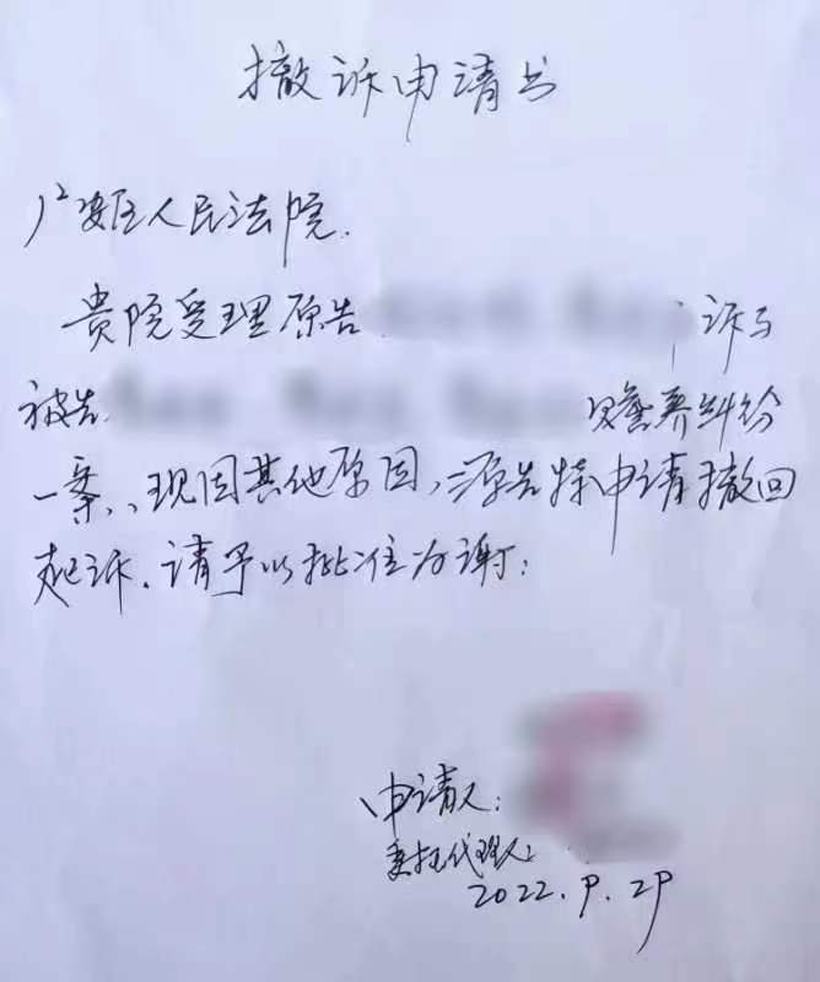 撤诉申请书
广安区人民法院.
贵院受理原告 诉与
被告 赡养纠纷
一案,现因其他原因,原告特申请撤回
起诉.请予以批准为谢:
申请人:
委托代理人:
2022.9.29